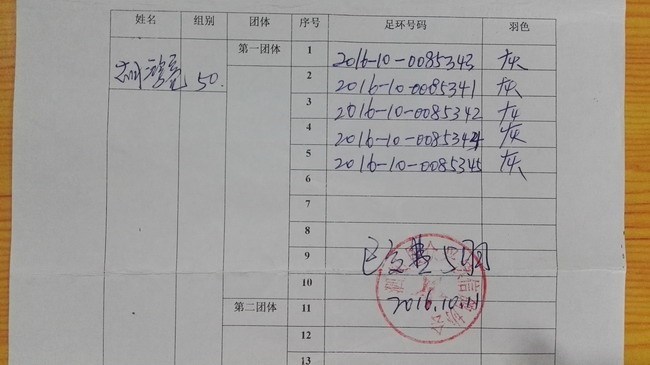 姓名 组别 团体 序号 足环号码 羽色
50. 第一团体 1 2016-10-0085343 灰
2 2016-10-0085341 灰
3 2016-10-0085342 灰
4 2016-10-0085344 灰
5 2016-10-0085345 灰
6
7
8
9 已交费5羽
10
第二团体 11 2016.10.11
12
13